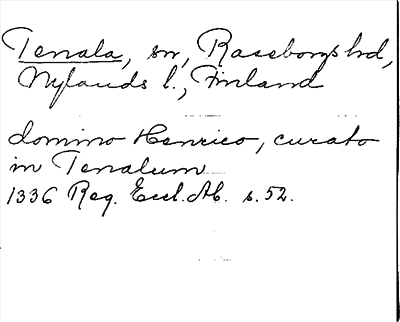 Tenala, sn, Raseborgs hd,
Nylands l., Finland
domino Henrico, curato
in Tenalum
1336 Reg. Eccl. Ab. s. 52.